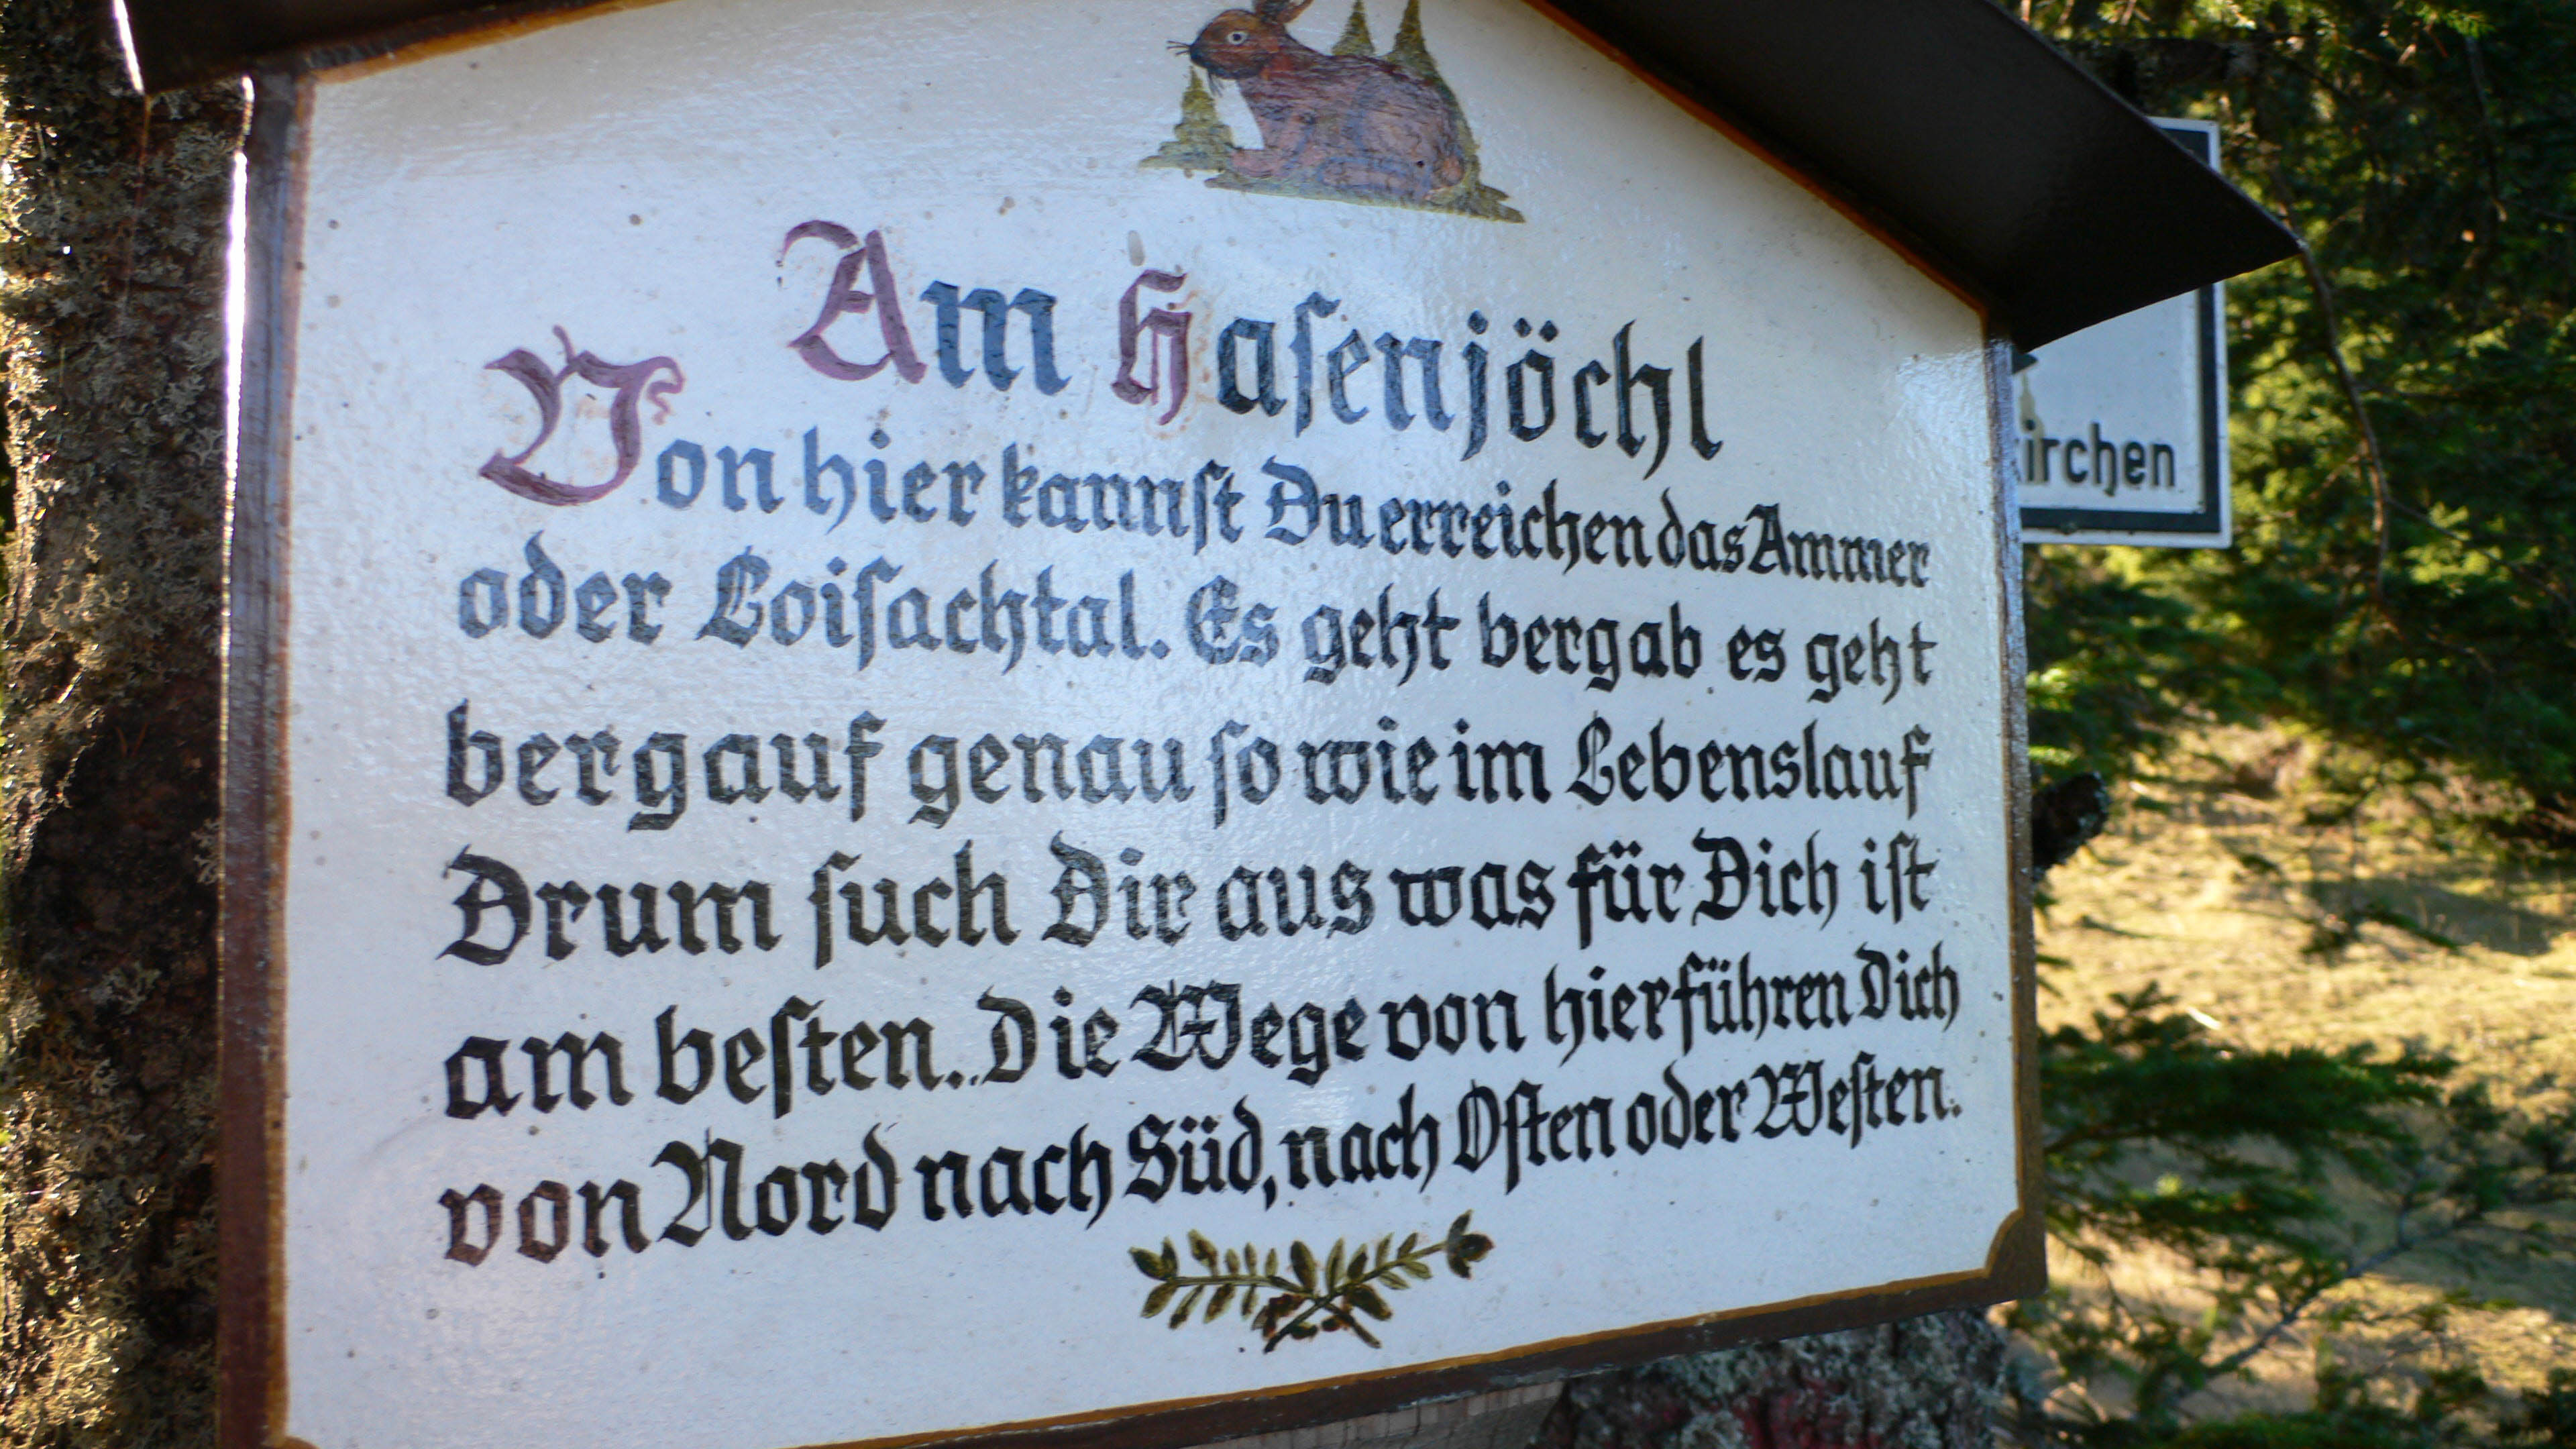 Am Hasenjöchl
Von hier kannst Du erreichen das Ammer
oder Loisachtal. Es geht bergab es geht
bergauf genau so wie im Lebenslauf
Drum such Dir aus was für Dich ist
am besten. Die Wege von hier führen Dich
von Nord nach Süd, nach Osten oder Westen.
irchen